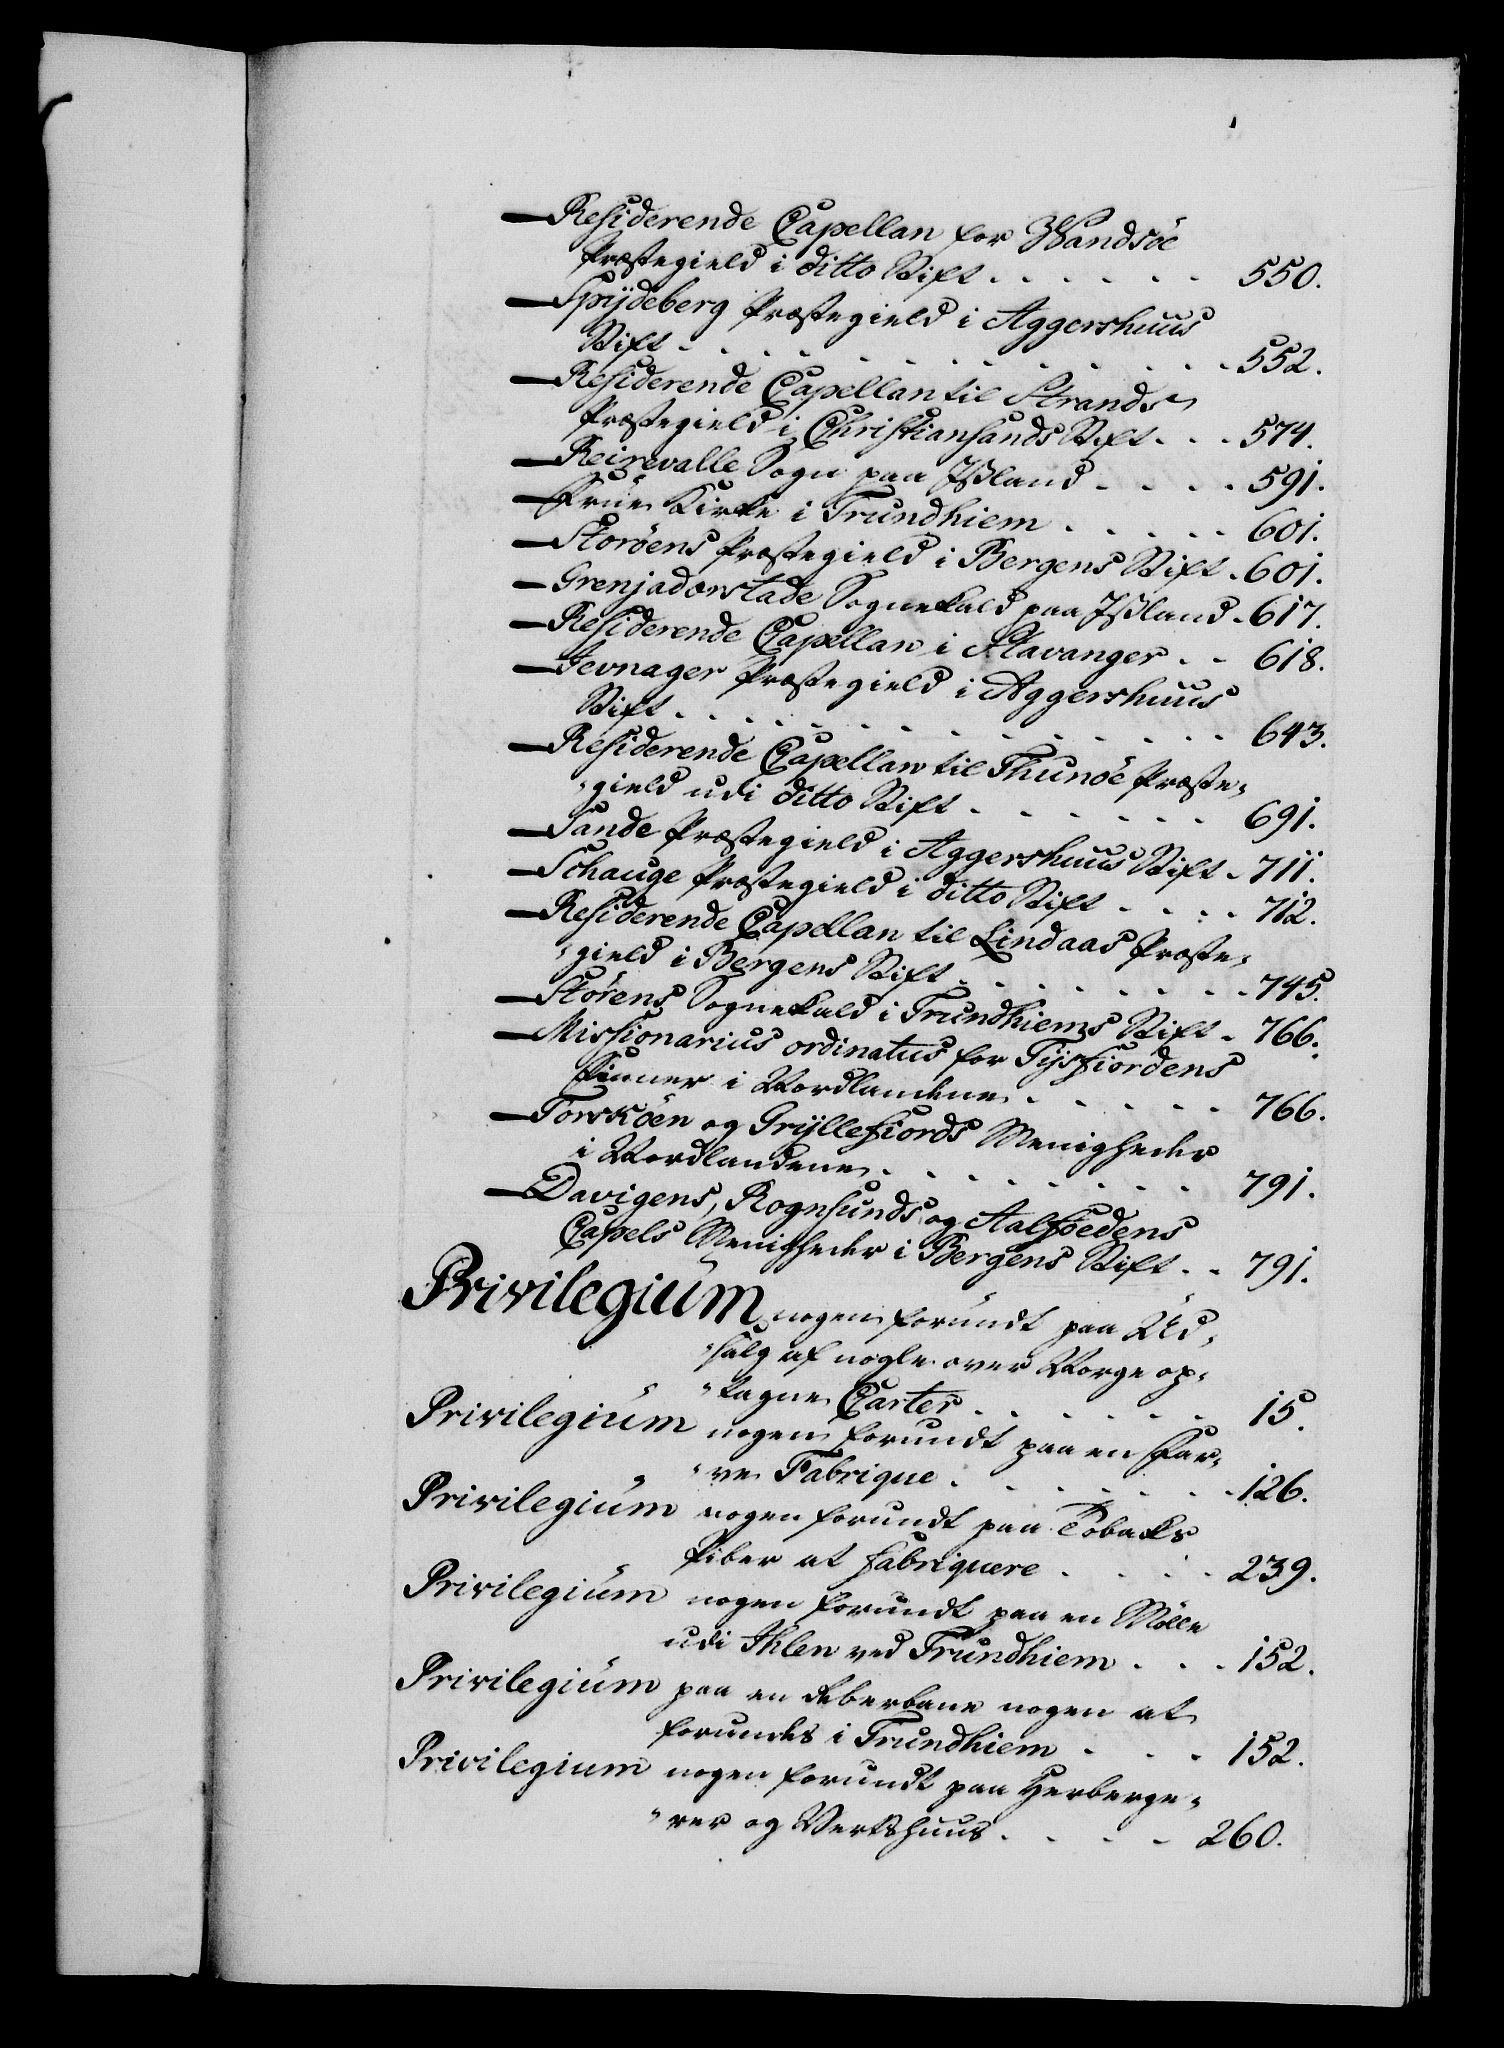 — Residerende Capellan for Wandsöe
Præstegield i ditto Stift . . . . . . 550.
— Spydeberg Præstegield i Aggershuus
Stift . . . . . . . . . . . . 552.
— Residerende Capellan til Strands
Præstegield i Christiansands Stift . . . 574.
— Reirevalle Sogn paa Jßland . . . . 591.
— Frue Kirke i Trundhiem . . . . . 601.
— Storöens Præstegield i Bergens Stift . 601.
— Grenjadarstade Sognekald paa Jßland . 617.
— Residerende Capellan i Stavanger . . 618.
— Jevnager Præstegield i Aggershuus
Stift . . . . . . . . . . . . 643.
— Residerende Capellan til Thunöe Præste-
-gield udi ditto Stift . . . . . . 691.
— Sande Præstegield i Aggershuus Stift . 711.
— Schauge Præstegield i ditto Stift . . . . 712.
— Residerende Capellan til Lindaas Præste-
-gield i Bergens Stift . . . . . . . . 745.
— Störens Sognekald i Trundhiems Stift . 766.
— Missionarius ordinatus for Tysfiordens
Finner i Nordlandene . . . . . 766.
— Torskøen og Gryllefiords Menigheder
i Nordlandene . . . . . . . 791.
— Davigens, Rognsunds og Aalfoedens
Capels Menigheder i Bergens Stift . . 791.
Privilegium nogen forundt paa Ud-
-salg af nogle over Norge op-
-tagne Carter . . . . . . 15.
Privilegium nogen forundt paa en Far-
-ve Fabrique . . . . . . . 126.
Privilegium nogen forundt paa Tobaks
Piber at fabriquere . . . . 239.
Privilegium nogen forundt paa en Mölle
udi Ihlen ved Trundhiem . . . 152.
Privilegium paa en Reberbane nogen at
forundes i Trundhiem . . . 152.
Privilegium nogen forundt paa Herberge-
-rer og Vertshuus . . . . 260.